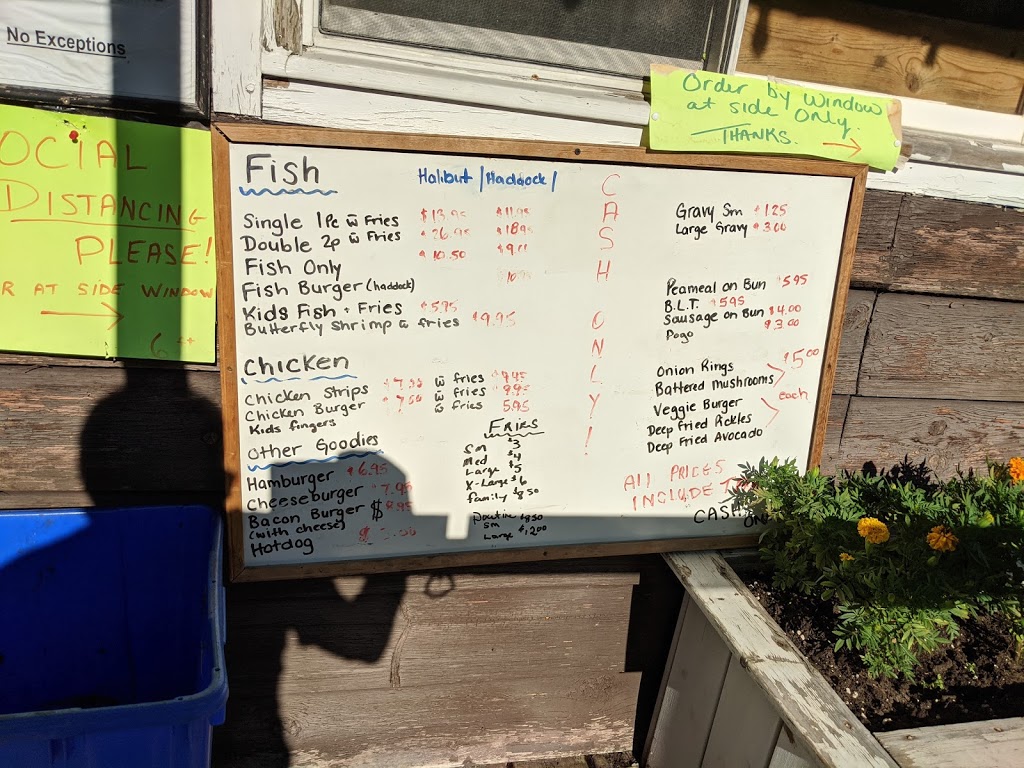 No Exceptions
OCIAL
DISTANCING
PLEASE!
R AT SIDE WINDOW
6 ft
Order by window
at side only.
THANKS.
Fish
Halibut / Haddock /
Single 1Pc w̄ Fries $13.95 $11.95
Double 2p w̄ Fries $26.95 $18.95
Fish Only $10.50
Fish Burger (haddock)
Kids Fish + Fries $5.95
Butterfly Shrimp w̄ fries $9.95
Chicken
Chicken Strips w̄ fries
Chicken Burger w̄ fries
Kids fingers w̄ fries 5.95
Other Goodies
Hamburger $6.95
Cheeseburger 7.95
Bacon Burger $8.95
(with cheese)
Hotdog
FRIES
Sm $3
Med $4
Large $5
X-Large $6
Family $8.50
Poutine
Sm $8.50
Large $12.00
CASH ONLY!
Gravy Sm $1.25
Large Gravy $3.00
Peameal on Bun $5.95
B.L.T. $5.95
Sausage on Bun $4.00
Pogo $3.00
Onion Rings
Battered mushrooms
$5.00
each
Veggie Burger
Deep Fried Pickles
Deep Fried Avocado
All PRICES
INCLUDE
CASH